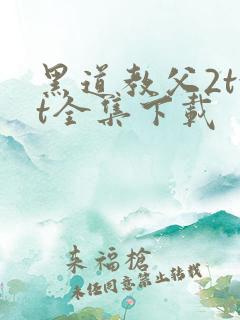 黑道教父2tx
t全集下载
来福枪
未经同意禁止转载